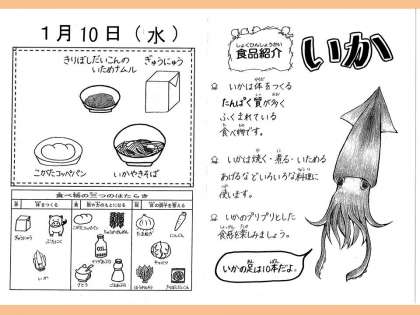 1月10日（水）
きりぼしだいこんの
いためナムル
ぎゅうにゅう
こがたコッペパン
いかやきそば
食べ物の三つのはたらき
体をつくる
熱や力のもとになる
体の調子を整える
ぎゅうにゅう
ぶたにく
いか
こがたコッペパン
さとう
ごまあぶら
たまねぎ
にんじん
しょくひんしょうかい
食品紹介
いか
いかは体をつくる
たんぱく質が多く
ふくまれている
食べ物です。
いかは焼く・煮る・いためる
あげるなどいろいろな料理に
使います。
いかのプリプリとした
食感を楽しみましょう。
いかの足は10本だよ。